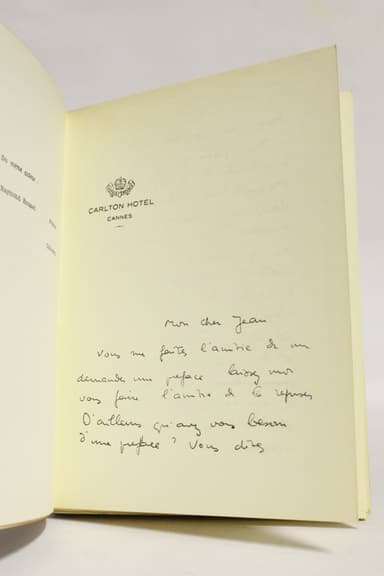 Du même auteur :
Raymond
CARLTON HOTEL
CANNES
Mon cher Jean
Vous me faites l'amitié de me
demander une preface laissez moi
vous faire l'amitié de la refuser
D'ailleurs qu'avez vous besoin
d'une preface ? Vous dites